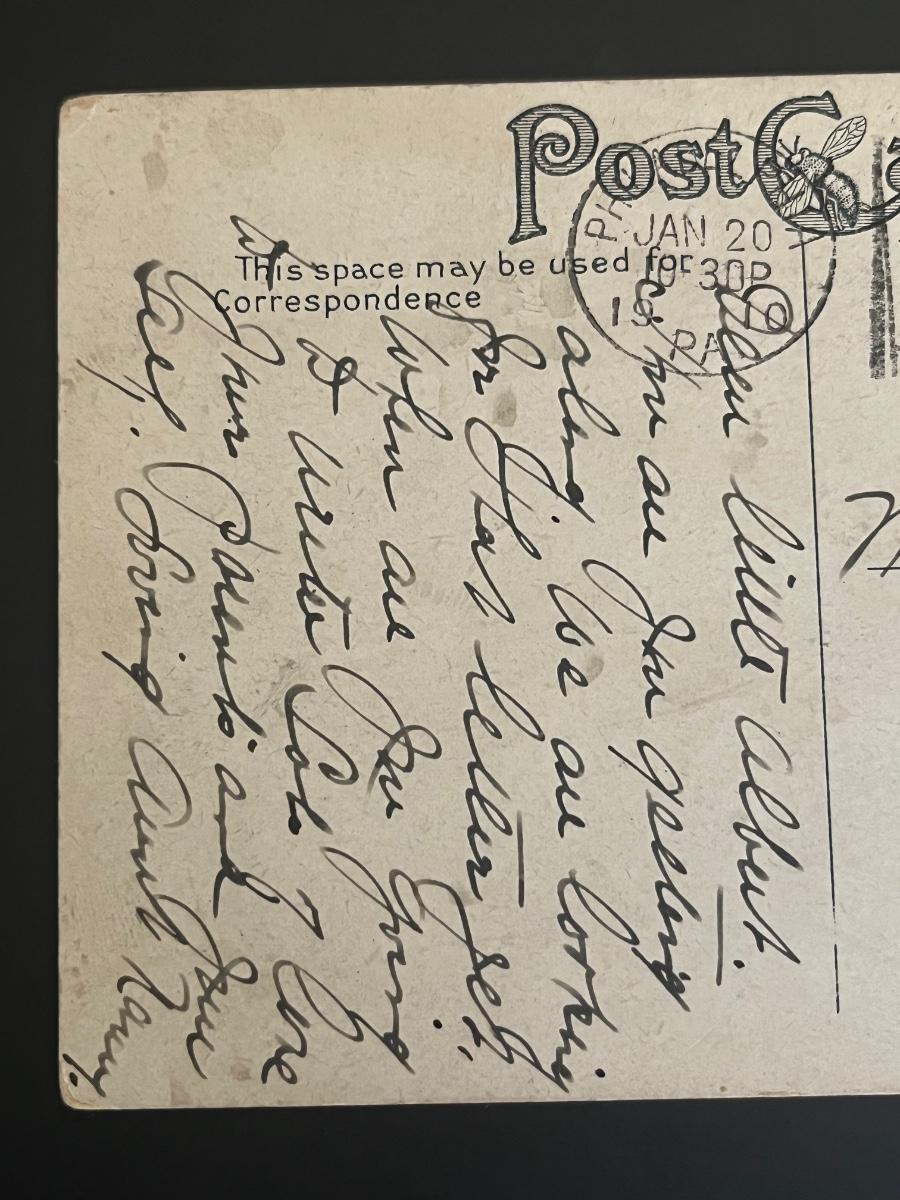 Post Ca
This space may be used for
Correspondence
JAN 20
30P
19
PA
Dear little Albert.
How are you getting
along. We are looking
for that letter yet.
When are you going
to write. Lots of love
to your parents and your
self. Loving Aunt